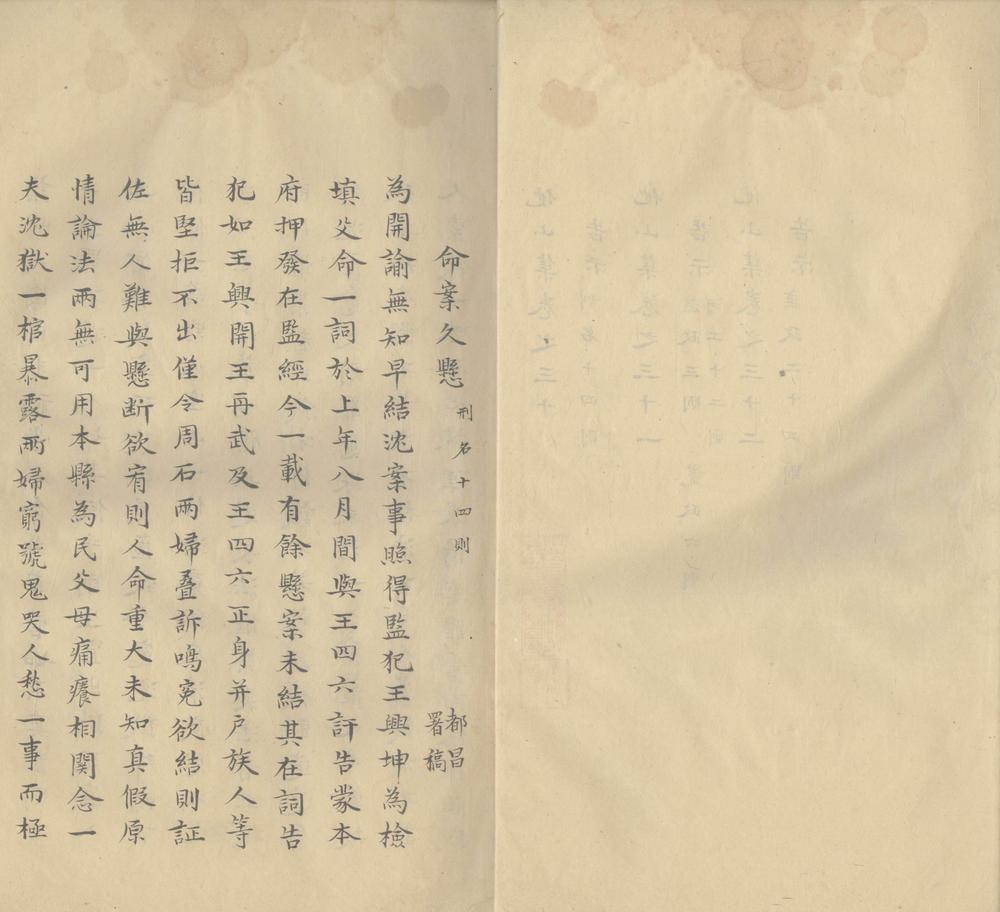 命案久懸 刑名十四則 都昌署稿
為開諭無知早結沈案事照得監犯王興坤為檢
填父命一詞於上年八月間與王四六訐告蒙本
府押發在監經今一載有餘懸案未結其在詞告
犯如王興開王再武及王四六正身并戶族人等
皆堅拒不出僅令周石兩婦叠訴鳴冤欲結則証
佐無人難與懸断欲宥則人命重大未知真假原
情論法兩無可用本縣為民父母痛癢相関念一
夫沈獄一棺暴露兩婦窮號鬼哭人愁一事而極